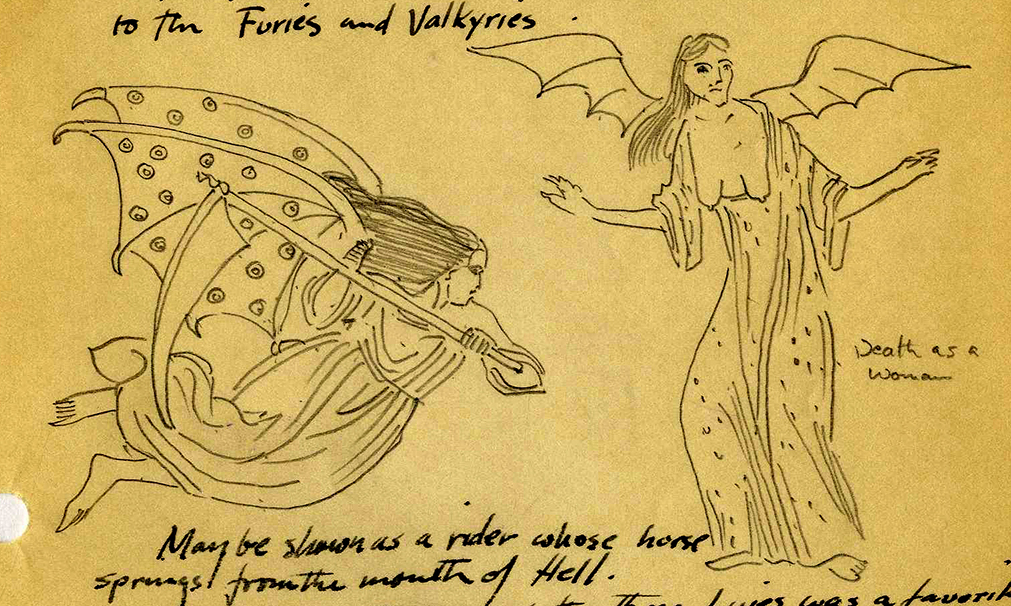 to the Furies and Valkyries.
Death as a
Woman
May be shown as a rider whose horse
springs from the mouth of Hell.
was a favorit